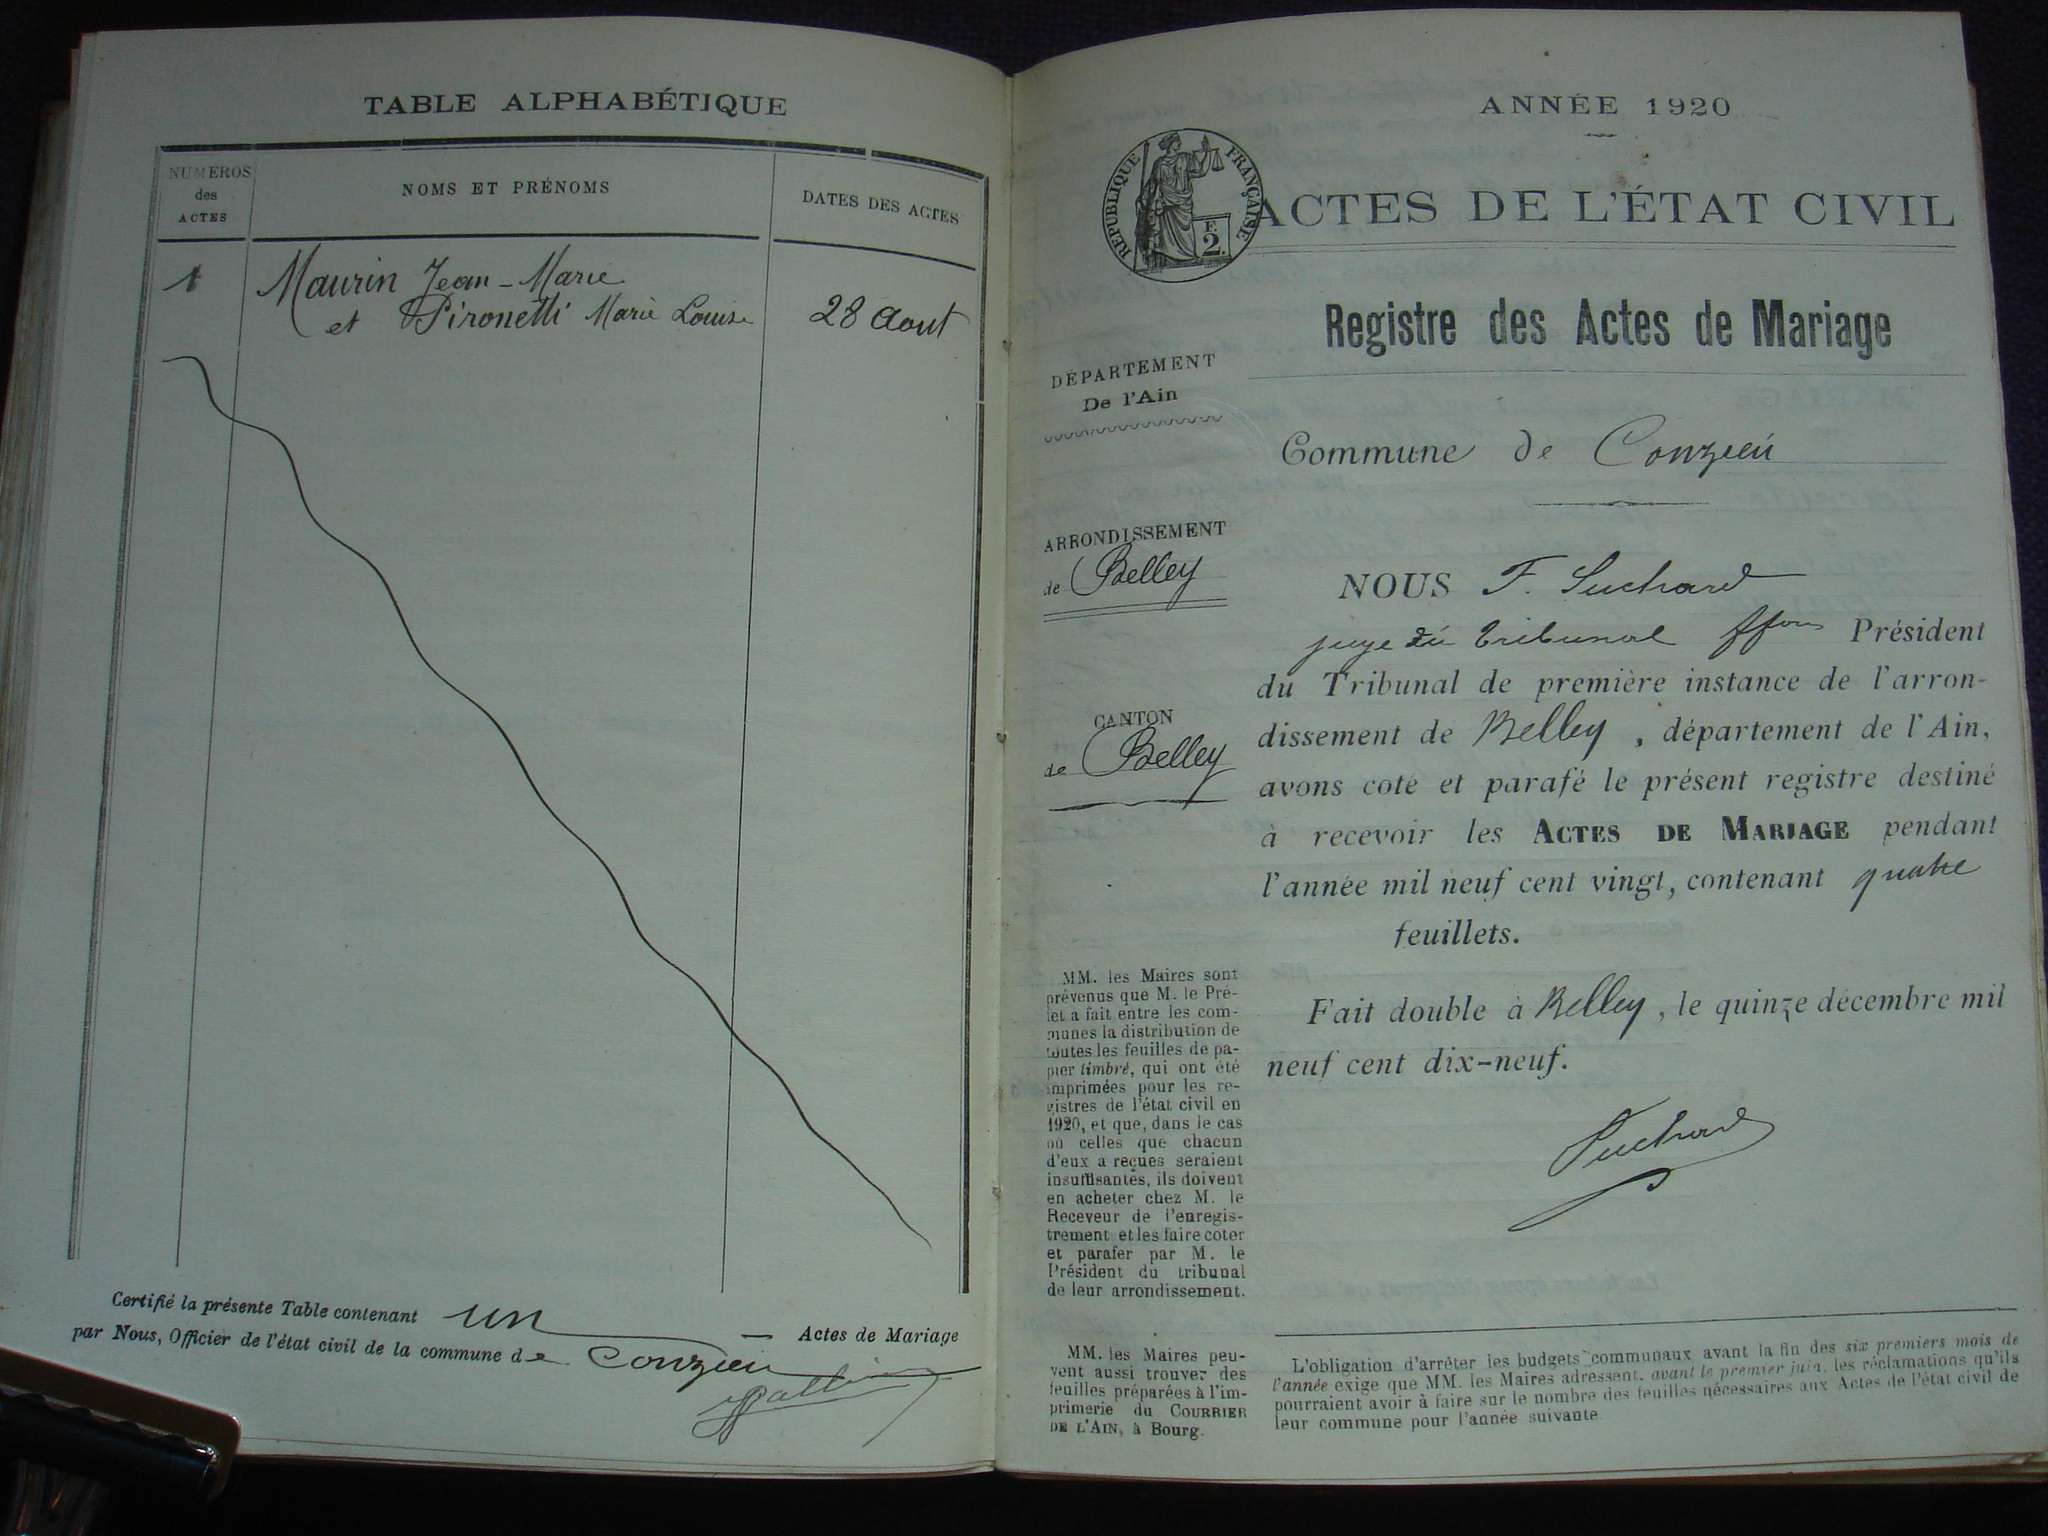 TABLE ALPHABÉTIQUE
NUMEROS
des
ACTES
NOMS ET PRÉNOMS
DATES DES ACTES
1
Maurin Jean-Marie
et Pironetti Marie Louise
28 Aout
Certifié la présente Table contenant un Actes de Mariage
par Nous, Officier de l'état civil de la commune de Conzieu
ANNÉE 1920
RÉPUBLIQUE FRANÇAISE
F.
2.
ACTES DE L'ÉTAT CIVIL
Registre des Actes de Mariage
DÉPARTEMENT
De l'Ain
Commune de Conzieu
ARRONDISSEMENT
de Belley
CANTON
de Belley
NOUS F. Suchard
juge du tribunal ffons Président
du Tribunal de première instance de l'arron-
dissement de Belley, département de l'Ain,
avons coté et parafé le présent registre destiné
à recevoir les ACTES DE MARIAGE pendant
l'année mil neuf cent vingt, contenant quatre
feuillets.
Fait double à Belley, le quinze décembre mil
neuf cent dix-neuf.
Suchard
MM. les Maires sont
prévenus que M. le Pré-
fet a fait entre les com-
munes la distribution de
toutes les feuilles de pa-
pier timbré, qui ont été
imprimées pour les re-
gistres de l'état civil en
1920, et que, dans le cas
où celles que chacun
d'eux a reçues seraient
insuffisantes, ils doivent
en acheter chez M. le
Receveur de l'enregis-
trement et les faire coter
et parafer par M. le
Président du tribunal
de leur arrondissement.
MM. les Maires peu-
vent aussi trouver des
feuilles préparées à l'im-
primerie du COURRIER
DE L'AIN, à Bourg.
L'obligation d'arrêter les budgets communaux avant la fin des six premiers mois de
l'année exige que MM. les Maires adressent, avant le premier juin, les réclamations qu'ils
pourraient avoir à faire sur le nombre des feuilles nécessaires aux Actes de l'état civil de
leur commune pour l'année suivante.